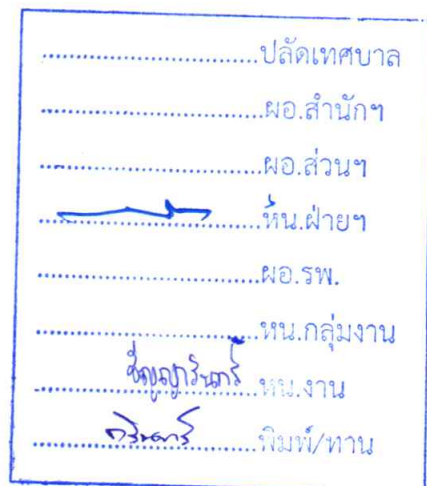 ..............................ปลัดเทศบาล
..............................ผอ.สำนักฯ
..............................ผอ.ส่วนฯ
..............................หน.ฝ่ายฯ
..............................ผอ.รพ.
..............................หน.กลุ่มงาน
..............................หน.งาน
..............................พิมพ์/ทาน